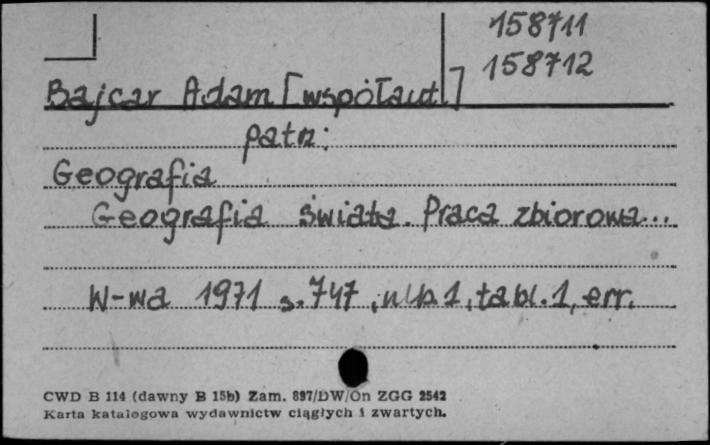 158711
158712
Bajcar Adam [współaut.]
patrz:
Geografia
Geografia świata. Praca zbiorowa...
W-wa 1971 s. 747, nlb. 1, tabl. 1, err.
CWD B 114 (dawny B 15b) Zam. 897/DW/On ZGG 2542
Karta katalogowa wydawnictw ciągłych i zwartych.